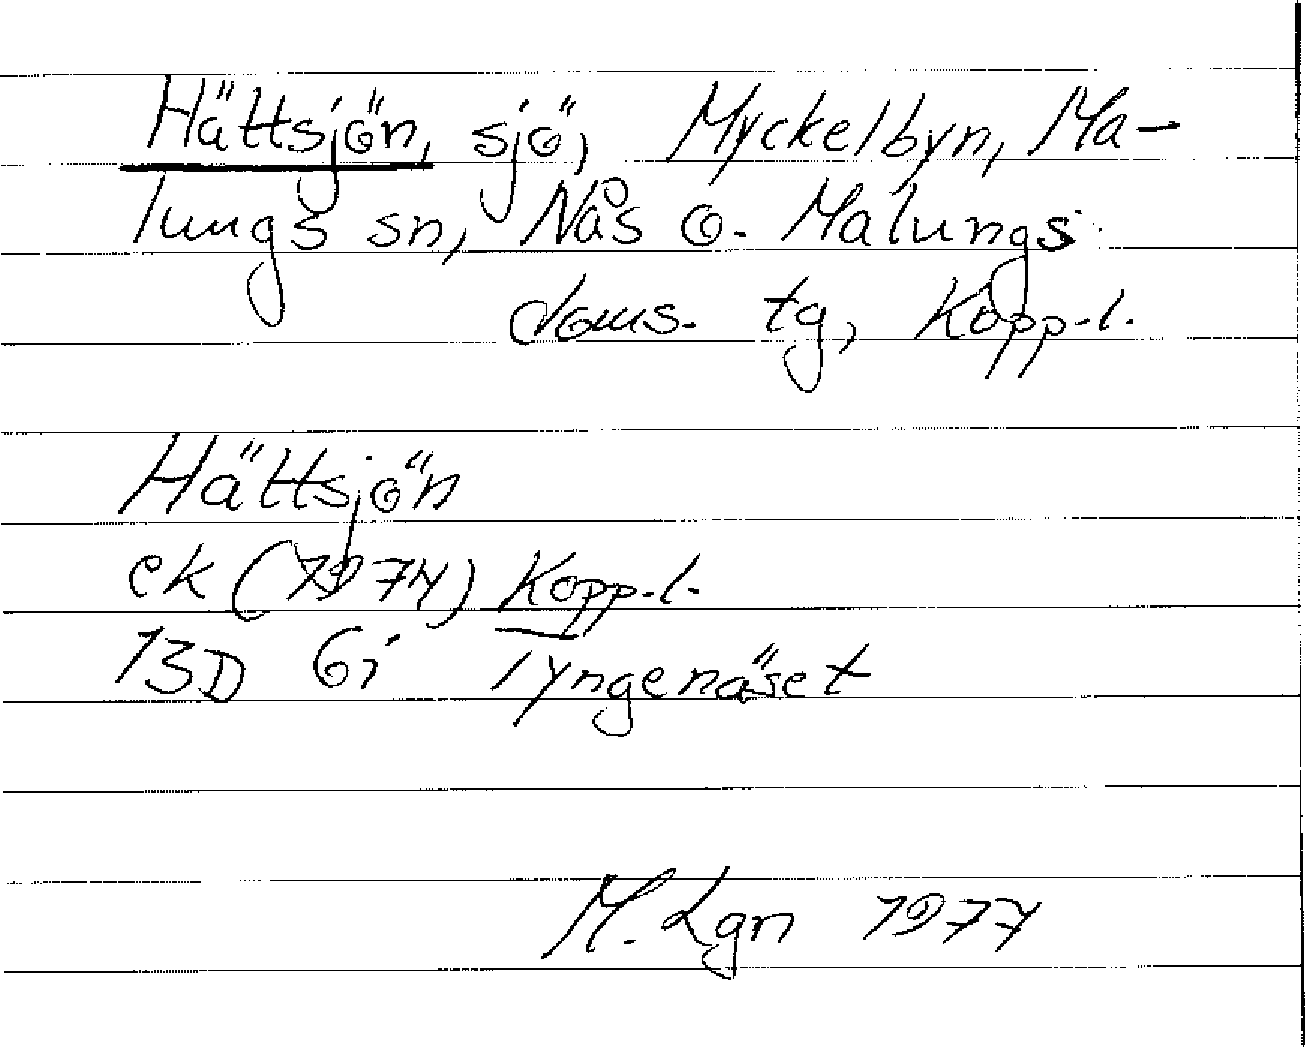 Hättsjön, sjö, Myckelbyn, Ma-
lungs sn, Nås o. Malungs
doms. tg, Kopp.l.
Hättsjön
ek (1974) Kopp.l.
13D 6i Tyngenäset
M. Lgn 1977